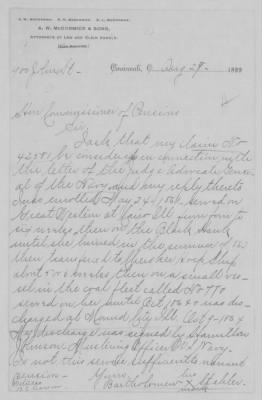 A. W. McCORMICK & SONS,
ATTORNEYS AT LAW AND CLAIM AGENTS,
Cincinnati, O., Aug 29 1889
Hon Commissioner of Pensions
Sir
I ask that my claim No
42581 be considered in connection with
the letter of the Judge Advocate Gener
al of the Navy and any reply thereto
I was enrolled May 24, 1861 served on
Great Western at Cairo Ill from four to
six weeks, then on the Black Hawk
until she burned in the summer of
then transferred to
about 5 or 6 weeks, then on a small ves
sel in the coal fleet called No 770
served on her until Oct, 1864 was dis
charged at Mound City Ill Oct 9-1864
My discharge was signed by Hamilton
Mustering Officer U.S. Navy.
Is not this service sufficient to warrant
pension
Yours,
his
Bartholomew X
mark